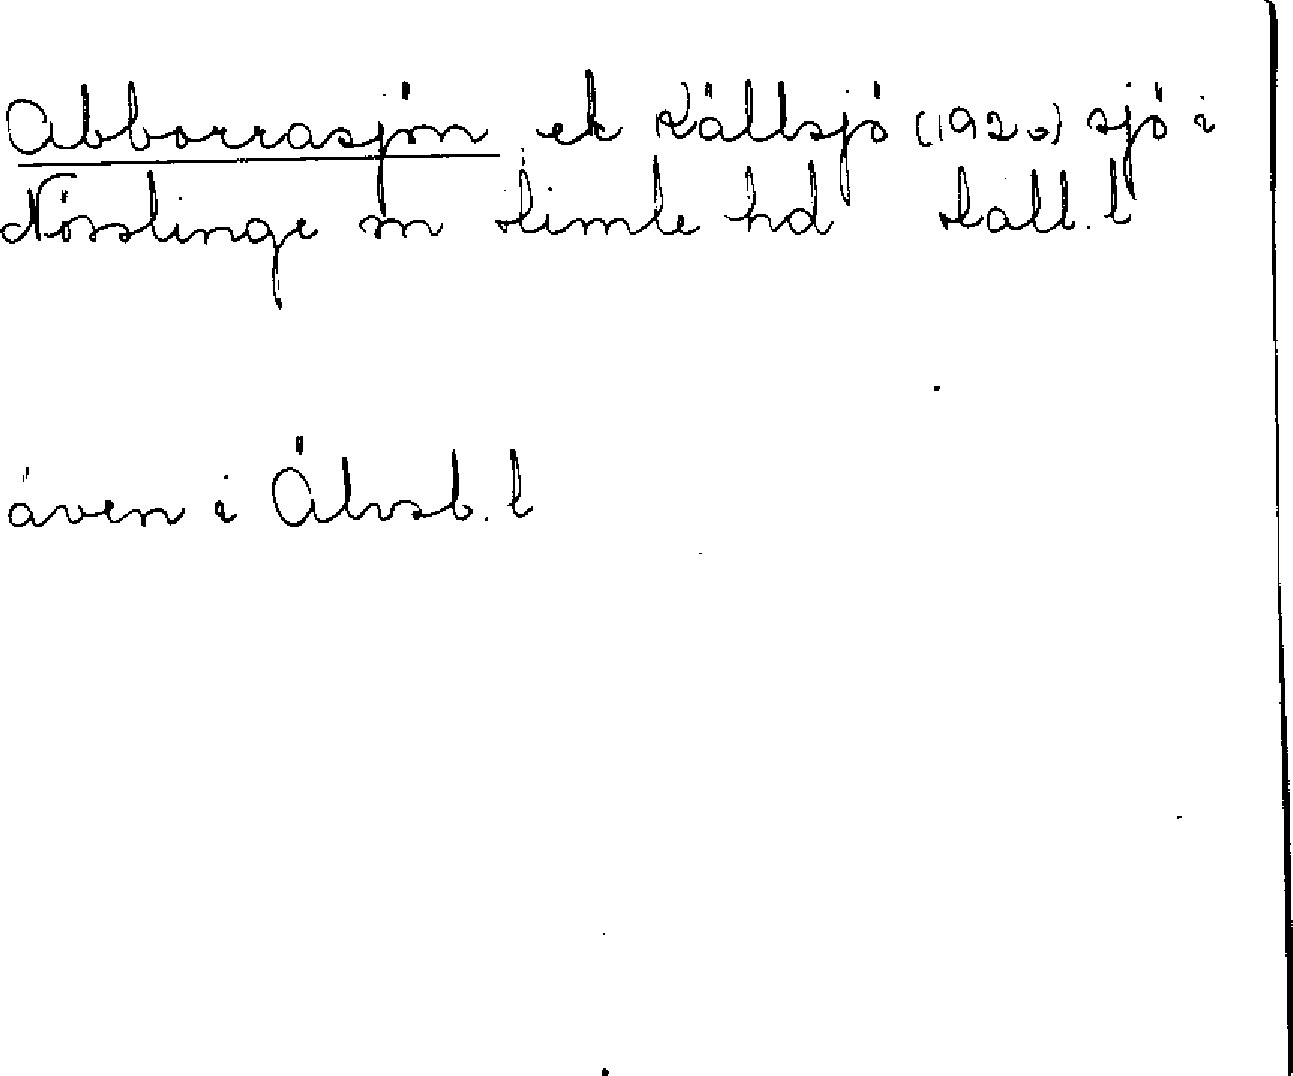 Abborrasjön ek Källsjö (1920) sjö i
Nösslinge sn Himle hd Hall. l
även i Älvsb. l